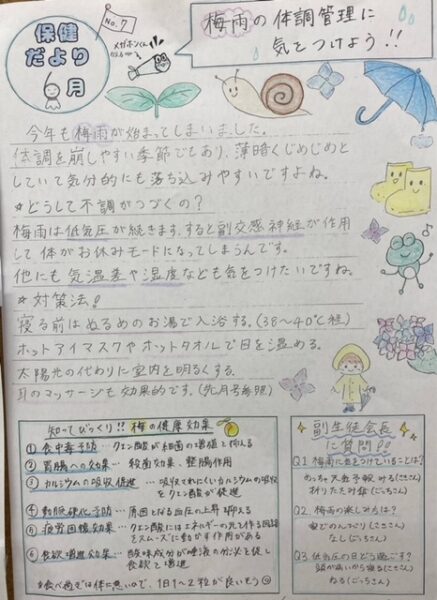 No.7
保健
だより
6月
メガホンくん
梅雨の体調管理に
気をつけよう!!
今年も梅雨が始まってしまいました。
体調を崩しやすい季節でもあり、薄暗くじめじめと
していて気分的にも落ち込みやすいですよね。
☆どうして不調がつづくの?
梅雨は低気圧が続きます。すると副交感神経が作用
して体がお休みモードになってしまうんです。
他にも気温差や湿度なども気をつけたいですね。
☆対策法!
寝る前はぬるめのお湯で入浴する。(38〜40℃程)
ホットアイマスクやホットタオルで目を温める。
太陽光の代わりに室内を明るくする。
耳のマッサージも効果的です。(先月号参照)
知ってびっくり!!梅の健康効果
①食中毒予防…クエン酸が細菌の増殖を抑える
②胃腸への効果…殺菌効果、整腸作用
③カルシウムの吸収促進…吸収されにくいカルシウムの吸収
をクエン酸が促進
④動脈硬化予防…原因となる血圧の上昇抑える
⑤疲労回復効果…クエン酸にはエネルギーの元を作る回路
をスムーズに動かす作用がある
⑥食欲増進効果…酸味成分が唾液の分泌を促し
食欲を増進
*食べ過ぎは体に悪いので、1日1〜2粒が良いそう
副生徒会長
に質問!!
Q1 梅雨に気をつけていることは?
めっちゃ天気予報みる(ごっちさん)
折りたたみ傘
Q2. 梅雨の楽しみ方は?
家でのんびり
なし(ごっちさん)
Q3 低気圧の日どう過ごす?
頭が痛いから寝る
ねる(ごっちさん)